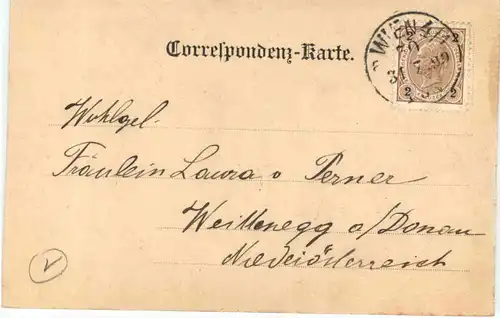 Correspondenz-Karte.
WIEN
2 2
Wohlgel.
Fräulein Laura v Perner
Weittenegg a/Donau
Niederösterreich